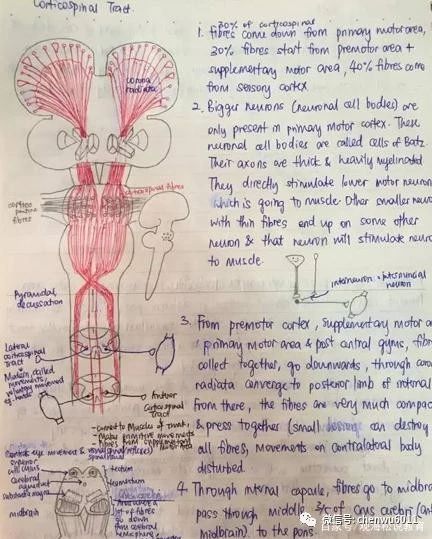 Corticospinal Tract.
30% of corticospinal
1. fibres come down from primary motor area,
30% fibres start from premotor area +
supplementary motor area, 40% fibres come
from sensory cortex
2. Bigger neurons (neuronal cell bodies) are
only present in primary motor cortex. These
neuronal cell bodies are called cells of Batz.
Their axons are thick & heavily myelinated
They directly stimulate lower motor neuron
which is going to muscle. Other smaller neu
with thin fibres end up on some other
neuron & that neuron will stimulate neuro
to muscle.
interneuron
neuron
3. From premotor cortex, supplementary motor a
primary motor area & post central gyrus, fib
collect together, go downwards, through coro
radiata converge to posterior limb of internal
from there, the fibres are very much compac
& press together (small can destroy
all fibres, movements on contralateral body
disturbed.
4. Through internal capsule, fibres go to midbra
pass through middle 3/5 of crus cerebri (ant
midbrain) to the pons.
corona
radiata
corticospinal fibres
cortico
pontine
fibres
Pyramidal
decussation
Lateral
corticospinal
Tract
movements,
voluntary movement
Anterior
Corticospinal
Tract
to Muscles of trunk,
movements
fibres from supplementary
motor area
eye movement & visual reflexes
superior
colliculus
cerebral
aqueduct
substantia nigra
midbrain
tectum
tegmentum
crus cerebri
a lot of fibres
go down
from
cerebral
hemisphere
微信号: chenwu6011
百家号/观海听说教育